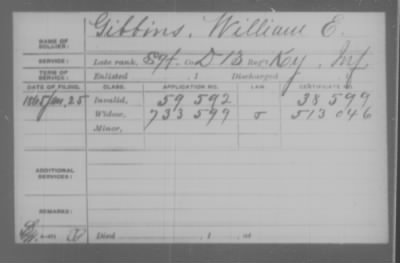 NAME OF SOLDIER: Gibbins, William E.
SERVICE: Late rank, Sgt. Co. D 13 Reg't Ky. Inf.
TERM OF SERVICE: Enlisted , 1 Discharged , 1
DATE OF FILING. CLASS. APPLICATION NO. LAW. CERTIFICATE NO.
1865 Jan. 25 Invalid, 59 592 38 599
Widow, 733 599 513 046
Minor,
ADDITIONAL SERVICES:
REMARKS:
Died , 1 , at